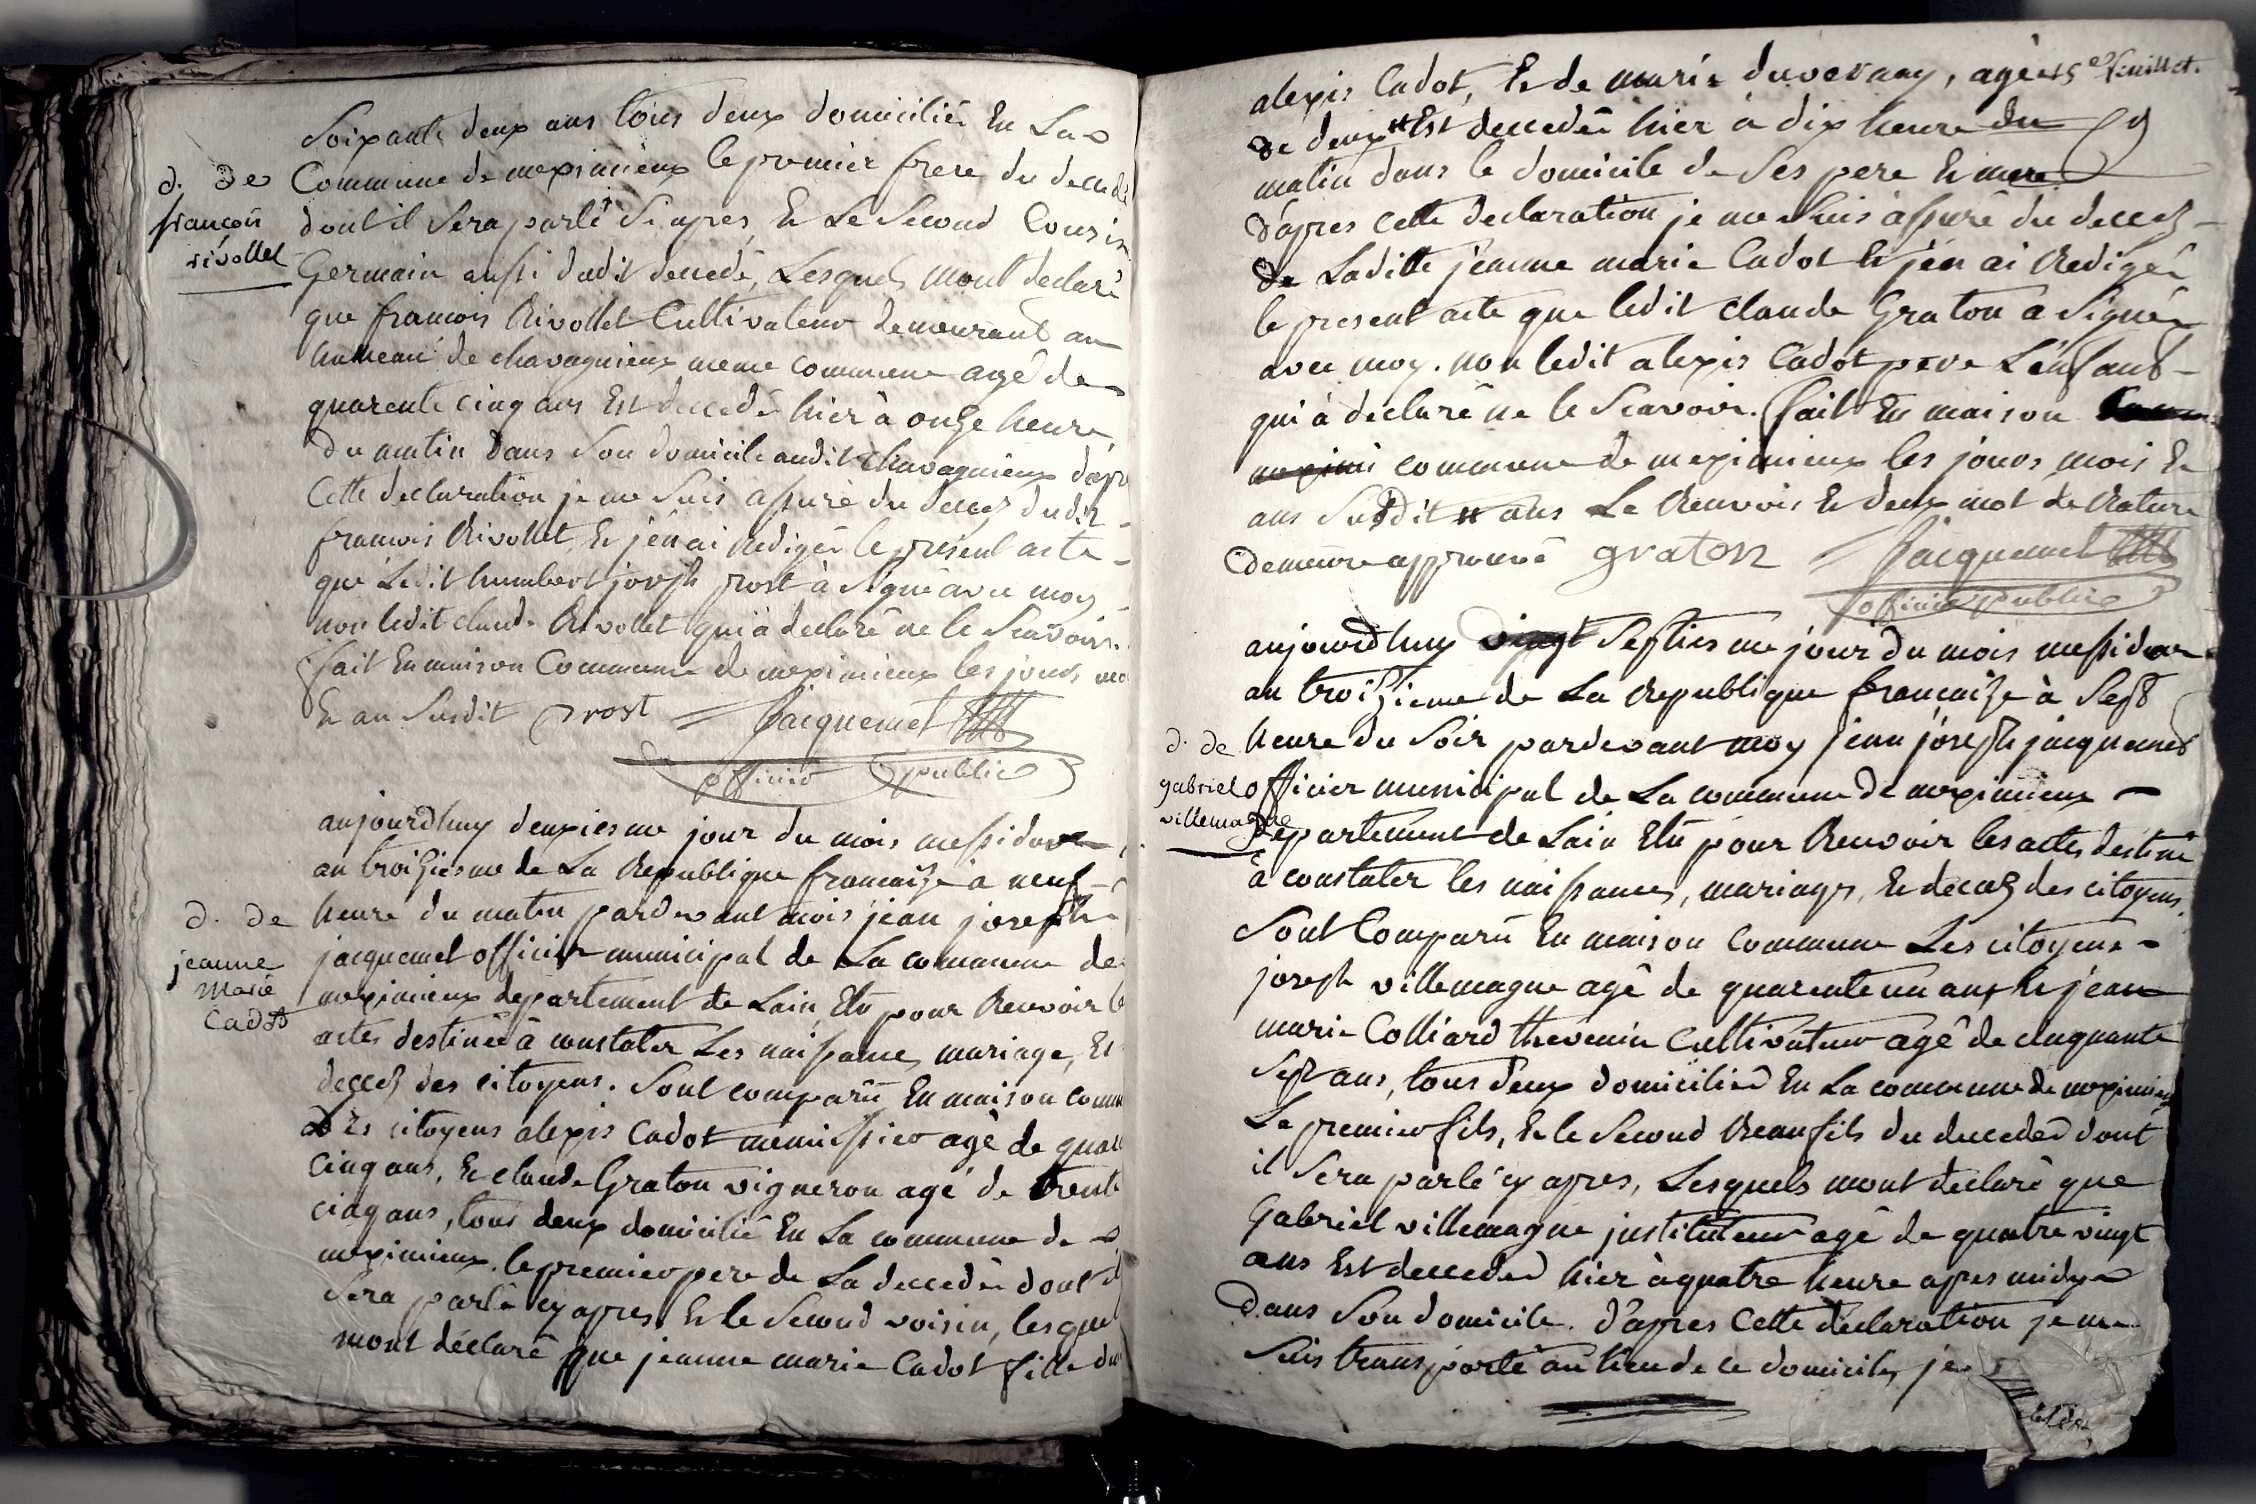 Soixante deux ans tous deux domicilié En La
d. de
françois
rivollet
Commune de meximieux le premier frere du decedé
dont il Sera parlé Si apres, Et Le Second Cousin
Germain aussi dudit decedé, Lesquels mont declaré
que francois Rivollet Cultivateur demeurant au
hameau de chavagnieux meme commune agé de
quarente cinq ans Est decedé hier à onze heure
du matin dans Son domicile audit chavagnieux dapr
Cette declaration je me Suis assuré du decez dudit
francois Rivollet, Et jén ai Redigér le présent acte
que Ledit humbert joseph prost à Signé avec moy
non ledit claude Rivollet qui à declaré ne le Scavoir.
fait En maison Commune de meximieux les jours, mo
Et an Susdit prost Jacquemet
officier public
aujourdhuy deuxiesme jour du mois messidor
an troiziesme de La Republique francaize à neuf
d. de
jeanne
Marie
Cadot
heure du matin pardevant mois jean joseph
jacquemet officier municipal de La commune de
meximieux departement de Lain, Elu pour Recevoir le
actes destinéé à constater Les naissances, mariage, Et
decez des citoyens. Sont comparü En maison comm
Les citoyens alexis Cadot menuissier agé de quar
Cinq ans, Et claude Graton vigneron agé de trente
cinq ans, tous deux domicilié En La commune de
meximieux, le premier pere de La decedée dont il
Sera parlé cy apres, Et le Second voisin, lesquel
mont déclaré que jeanne marie Cadot fille du
alexis Cadot, Et de marie duvernay, agéé 15e feuillet.
de deux # Est decedéé hier à dix heure du
matin dans le domicile de Ses pere Et mere
d'apres cette declaration je me Suis assuré du decez
de Laditte jeanne marie Cadot Et jén ai Redigér
le present acte que ledit claude Graton à Signér
avec moy. non ledit alexis Cadot pere Lénfant
qui à declaré ne le Scavoir. fait En maison
commune de meximieux les jours, mois Et
ans Susdit # ans Le Renvois Et deux mot de Rature
demeure approuvé graton Jacquemet
officier public
aujourdhuy Septiesme jour du mois messidor
an troizieme de La Republique francaize à Sept
d. de
gabriel
villemagne
heure du Soir pardevant moy jean joseph jacquemet
officier municipal de La commune de meximieux
departement de Lain Elu pour Recevoir les actes destiné
à constater les naissances, mariages, Et decez des citoyens,
Sont Comparü En maison Commune Les citoyens
joseph villemagne agé de quarente un ans Et jéan
marie Colliard thevenin Cultivateur agé de cinquante
Sept ans, tous deux domicilied En La commune de meximieux
Le premier fils, Et le Second Beaufils du decedéd dont
il Sera parlé cy apres, Lesquels mont declaré que
Gabriel villemagne jnstituteur agé de quatre vingt
ans Est decedéd hier à quatre heure apres midy
dans Son domicile. d'apres Cette declaration je me
Suis transporté au lieu de ce domicile, je